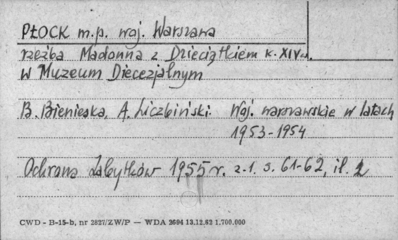 PŁOCK m.p. woj. Warszawa
rzeźba Madonna z Dzieciątkiem k. XIV w.
w Muzeum Diecezjalnym
B. Bienieska, A. Liczbiński. Woj. warszawskie w latach
1953-1954
Ochrona Zabytków 1955 r. z. 1. s. 61-62, il. 2
CWD - B-15-b, nr 2827/ZW/P — WDA 2694 13.12.62 1.700.000